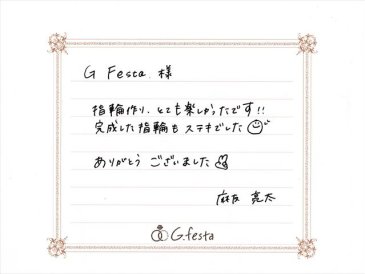 G Festa 様
指輪作り、とても楽しかったです!!
完成した指輪も ステキでした
ありがとう ございました
麻友 亮太
G.festa